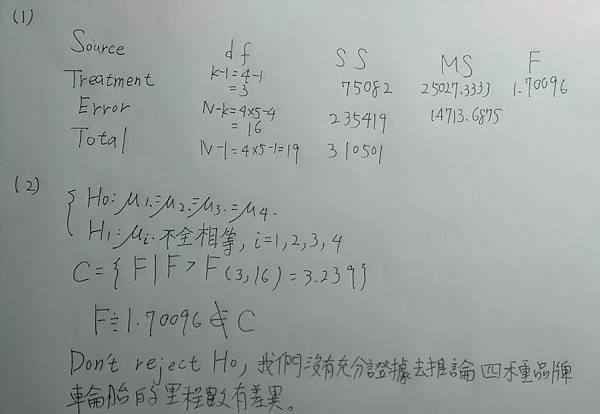 (1)
Source df SS MS F
Treatment k-1=4-1=3 75082 25027.3333 1.70096
Error N-k=4×5-4=16 235419 14713.6875
Total N-1=4×5-1=19 310501
(2)
{ H0: μ1.=μ2.=μ3.=μ4.
H1: μi. 不全相等, i=1,2,3,4
C={F|F>F(3,16)=3.239}
F≒1.70096 ∉ C
Don't reject H0, 我們沒有充分證據去推論四種品牌
車輪胎的里程數有差異。